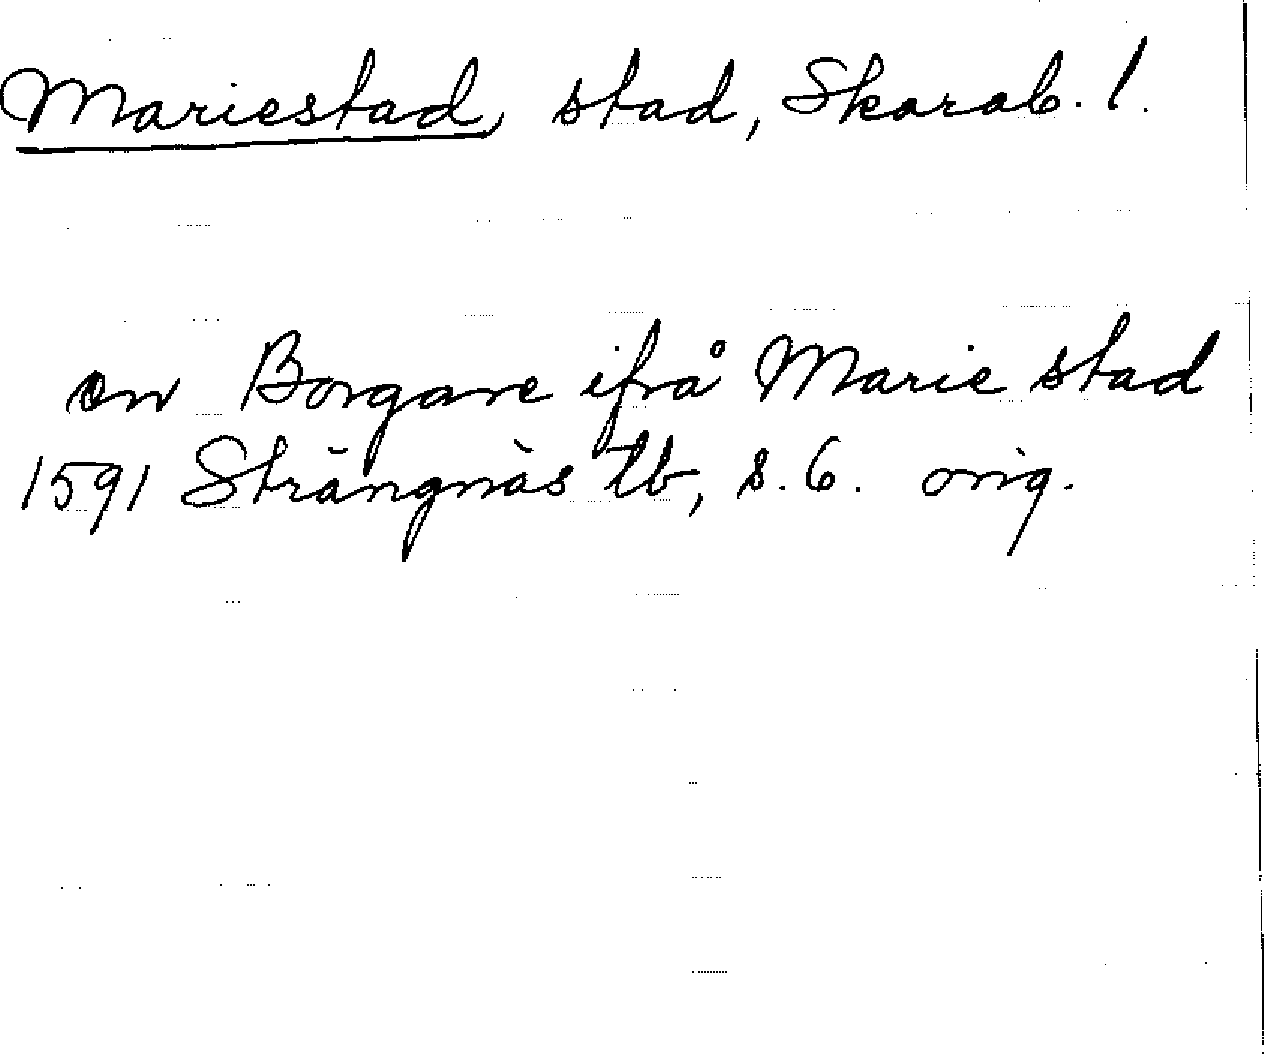 Mariestad, stad, Skarab. l.
en Borgare ifrå Marie stad
1591 Strängnäs tb, s. 6. orig.